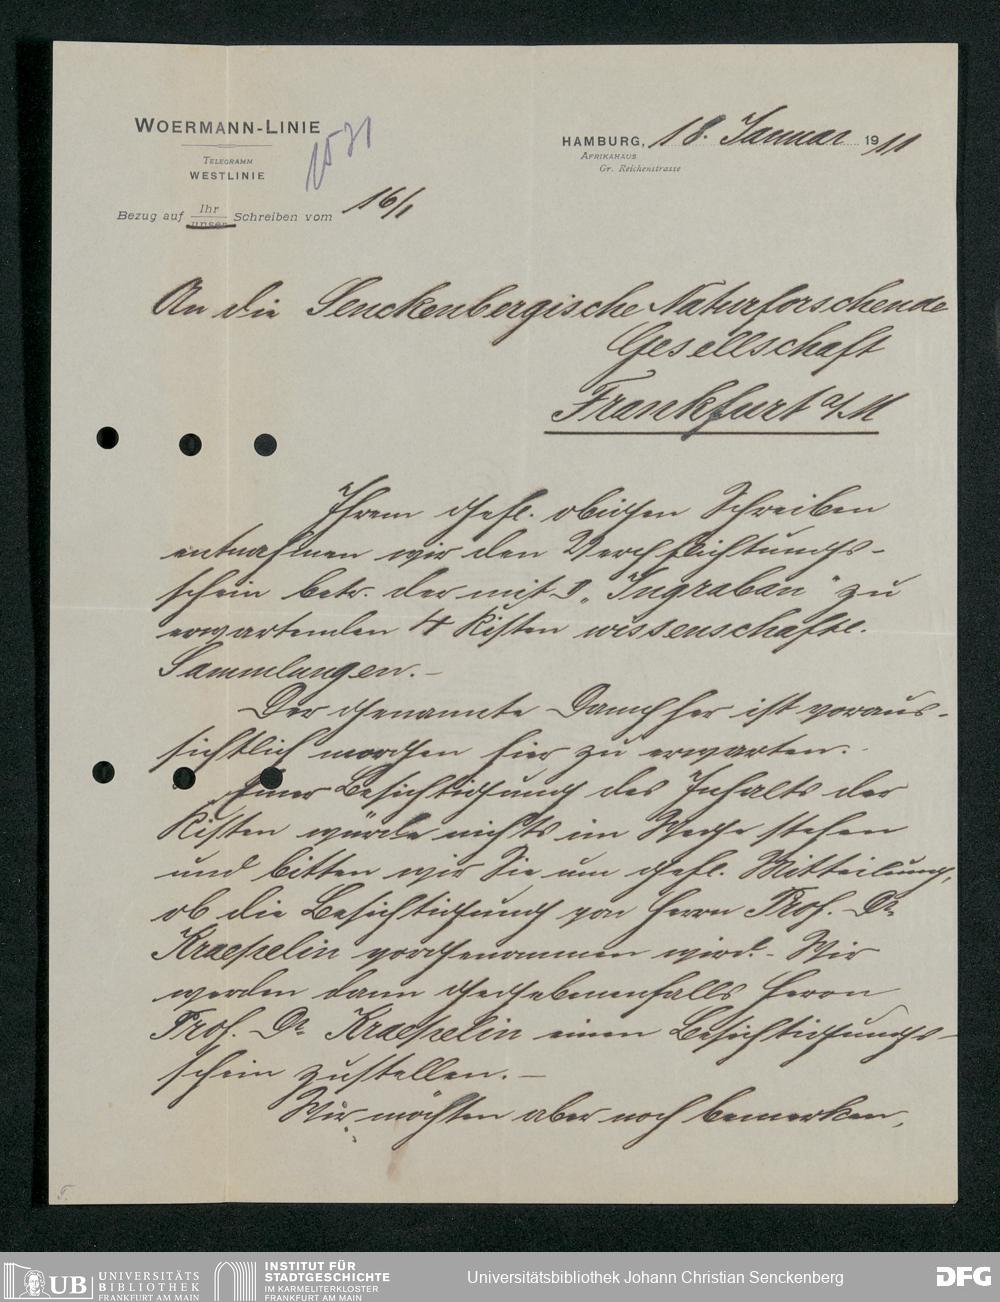 WOERMANN-LINIE
TELEGRAMM
WESTLINIE
1531
HAMBURG, 18. Januar 1911
AFRIKAHAUS
Gr. Reichenstrasse
Bezug auf Ihr Schreiben vom 16/1
unser
An die Senckenbergische Naturforschende
Gesellschaft
Frankfurt a/M
Ihrem gefl. obigen Schreiben
entnahmen wir den Verpflichtungs-
schein betr. der mit D. „Ingraban" zu
erwartenden 4 Kisten wissenschaftl.
Sammlungen.-
Der genannte Dampfer ist voraus-
sichtlich morgen hier zu erwarten.
Einer Besichtigung des Inhalts der
Kisten würde nichts im Wege stehen
und bitten wir Sie um gefl. Mitteilung,
ob die Besichtigung von Herrn Prof. Dr.
Kraepelin vorgenommen wird.- Wir
werden dann gegebenenfalls Herrn
Prof. Dr. Kraepelin einen Besichtigungs-
schein zustellen.-
Wir möchten aber noch bemerken,
UB UNIVERSITÄTS
BIBLIOTHEK
FRANKFURT AM MAIN
INSTITUT FÜR
STADTGESCHICHTE
IM KARMELITERKLOSTER
FRANKFURT AM MAIN
Universitätsbibliothek Johann Christian Senckenberg
DFG